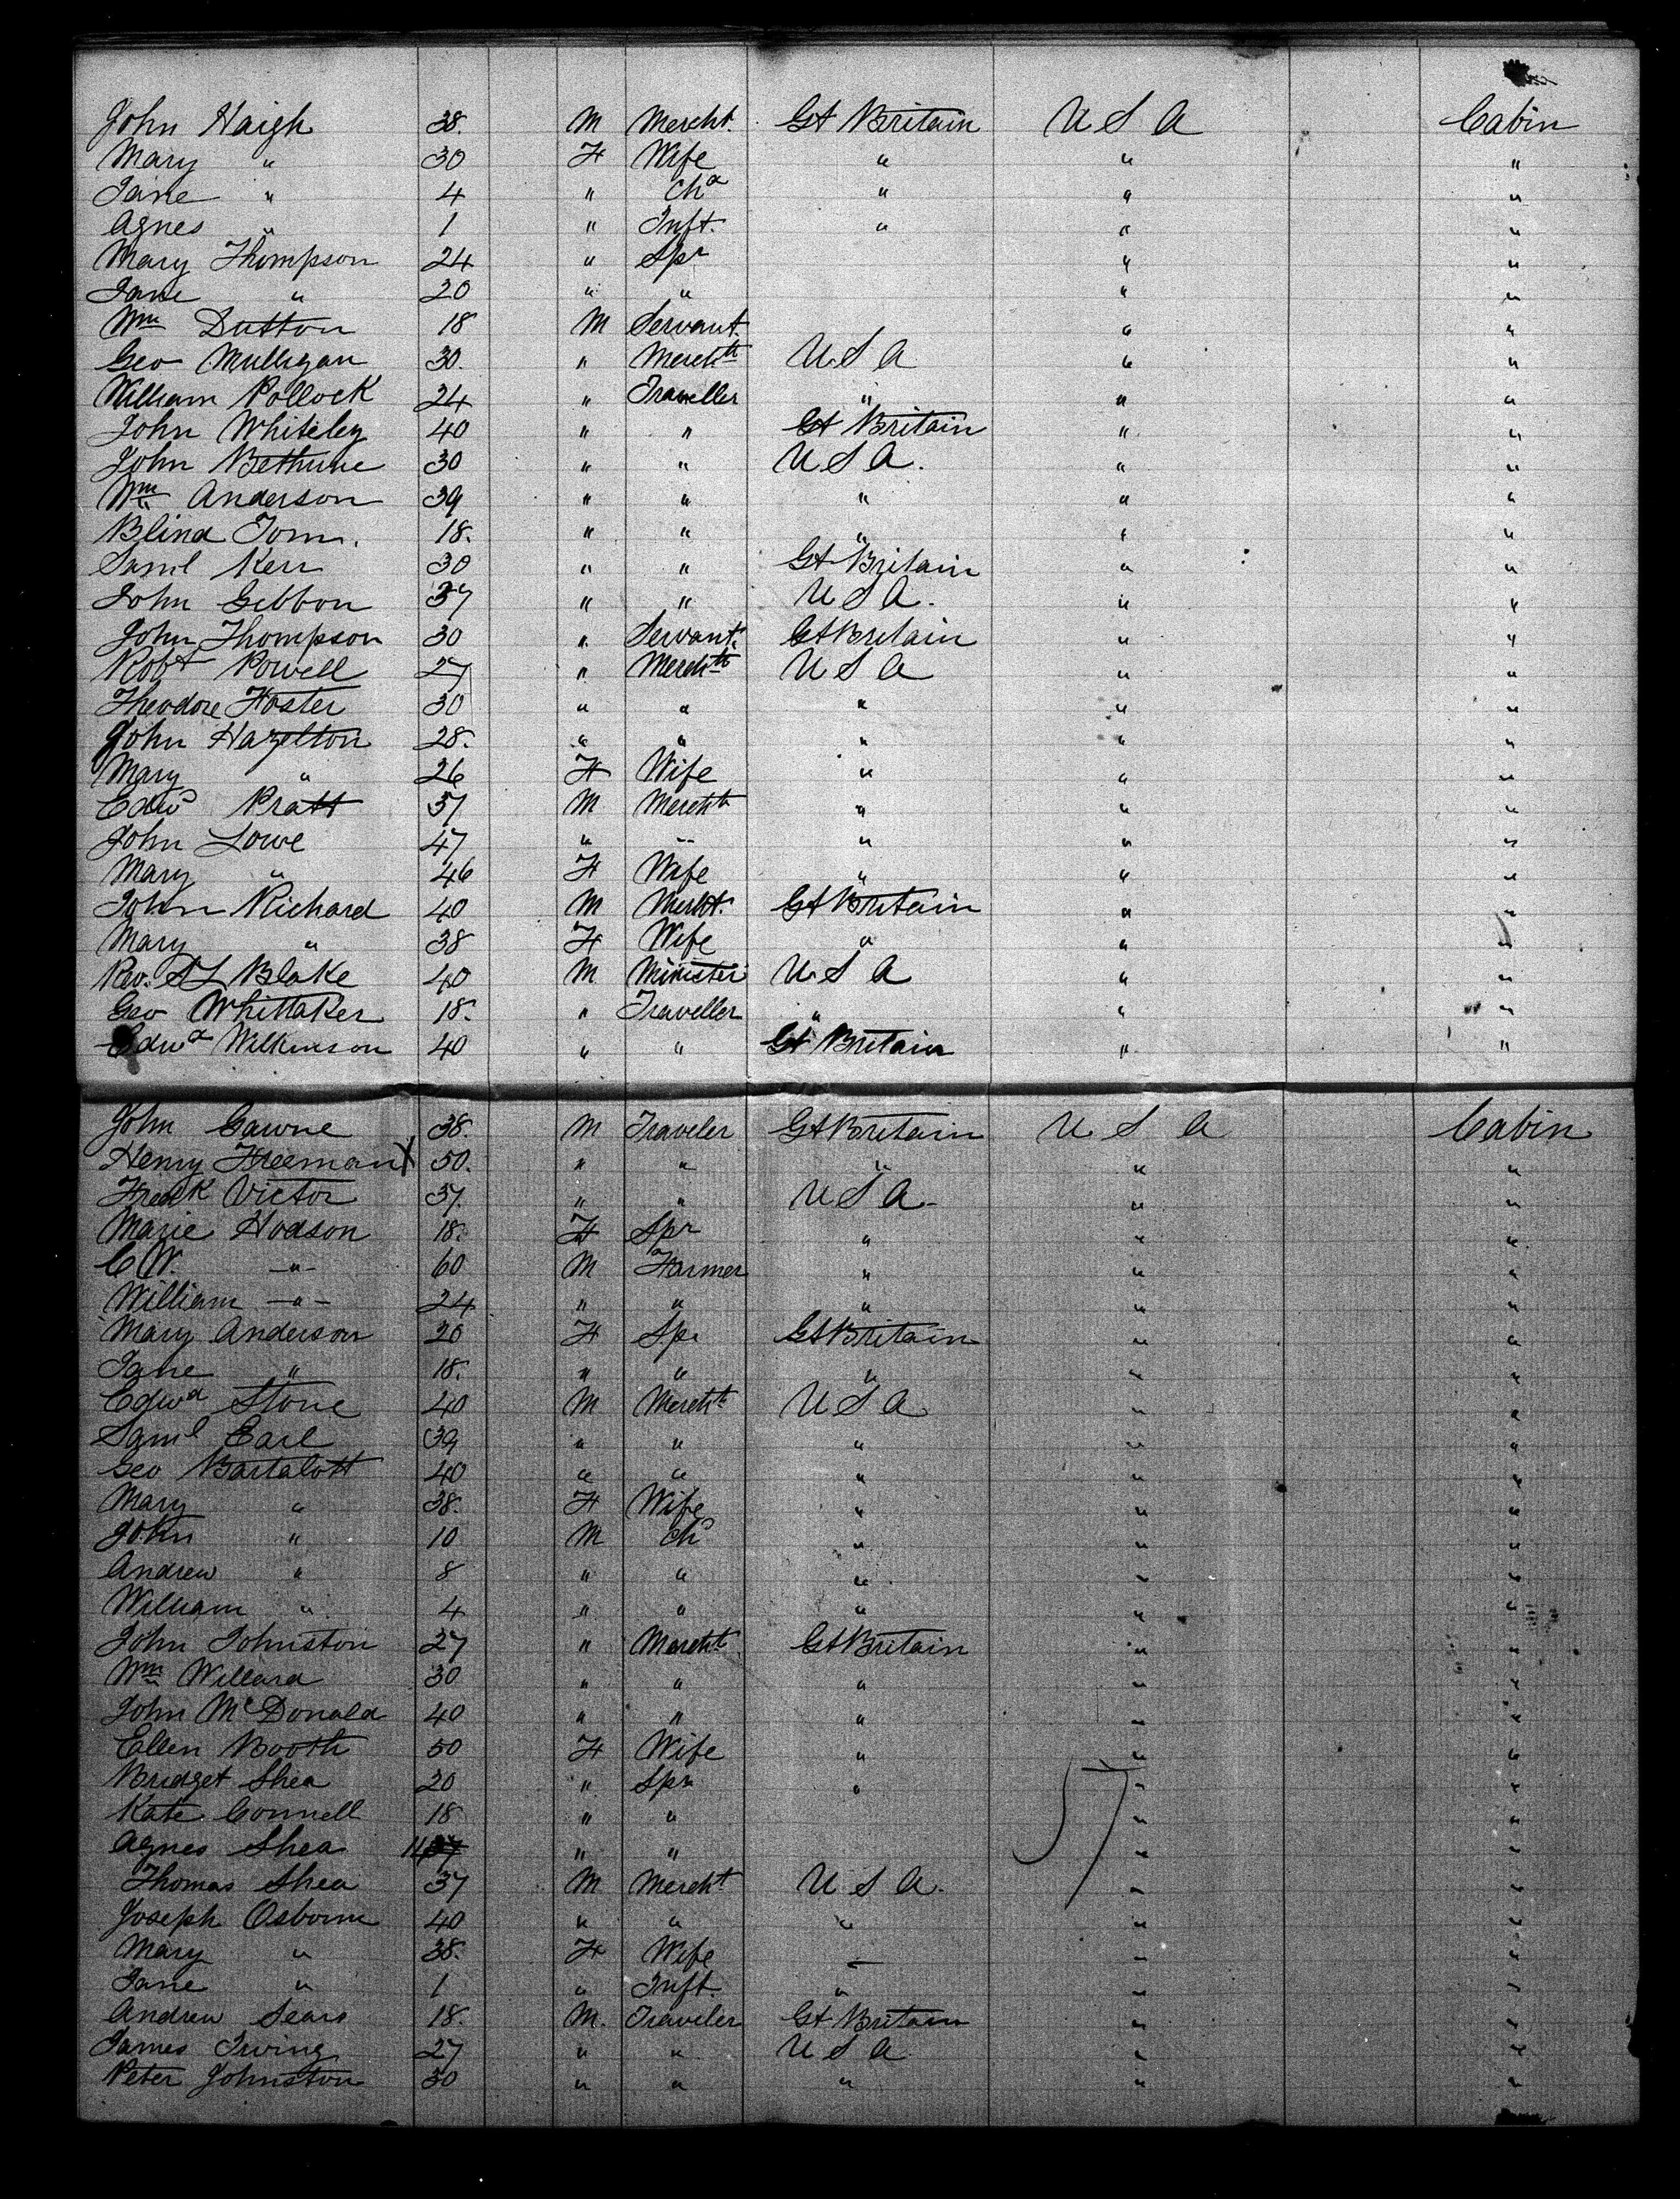 John Haigh 38. M Mercht. Gt Britain U S A Cabin
Mary " 30 F Wife " " "
Jane " 4 " Chd " " "
Agnes " 1 " Inft. " " "
Mary Thompson 24 " Spr " "
Jane " 20 " " " "
Wm Dutton 18 M Servant. " "
Geo Mulligan 30. " Merchts U S A " "
William Pollock 24 " Traveller " " "
John Whiteley 40 " " Gt Britain " "
John Bethune 30 " " U S A. " "
Wm Anderson 39 " " " " "
Blind Tom. 18. " " " " "
Saml Kerr 30 " " Gt Britain " "
John Gibbon 37 " " U S A. " "
John Thompson 30 " Servant. Gt Britain " "
Robt Powell 27 " Merchts U S A " "
Theodore Foster 30 " " " " "
John Hazelton 28. " " " " "
Mary " 26 F Wife " " "
Edwd Pratt 37 M Mercht " " "
John Lowe 47 " " " " "
Mary " 46 F Wife " " "
John Richard 40 M Mercht. Gt Britain " "
Mary " 38 F Wife " " "
Rev. S L Blake 40 M Minister U S A " "
Geo Whittaker 18. " Traveller " " "
Edwd Wilkinson 40 " " Gt Britain " "
John Gawne 38. M Traveler Gt Britain U S A Cabin
Henry Freeman X 50. " " " " "
Fredk Victor 37. " " U S A - " "
Marie Hodson 18. F Spr " " "
C W. -"- 60 M Farmer " " "
William -"- 24 " " " " "
Mary Anderson 20 F Spr Gt Britain " "
Jane " 18. " " " " "
Edwd Stone 40 M Mercht U S A " "
Saml Earl 39 " " " " "
Geo Bartalott 40 " " " " "
Mary " 38. F Wife " " "
John " 10 M Chd " " "
Andrew " 8 " " " " "
William " 4 " " " " "
John Johnston 27 " Mercht Gt Britain " "
Wm Willard 30 " " " " "
John McDonald 40 " " " " "
Ellen Booth 50 F Wife " " "
Bridget Shea 20 " Spr " " "
Kate Connell 18 " " " "
Agnes Shea " " " "
Thomas Shea 37 M Mercht U S A. " "
Joseph Osborne 40 " " " " "
Mary " 38. F Wife " " "
Jane " 1 " Inft. " " "
Andrew Sears 18. M. Traveler Gt Britain " "
James Irving 27 " " U S A. " "
Peter Johnston 30 " " " " "